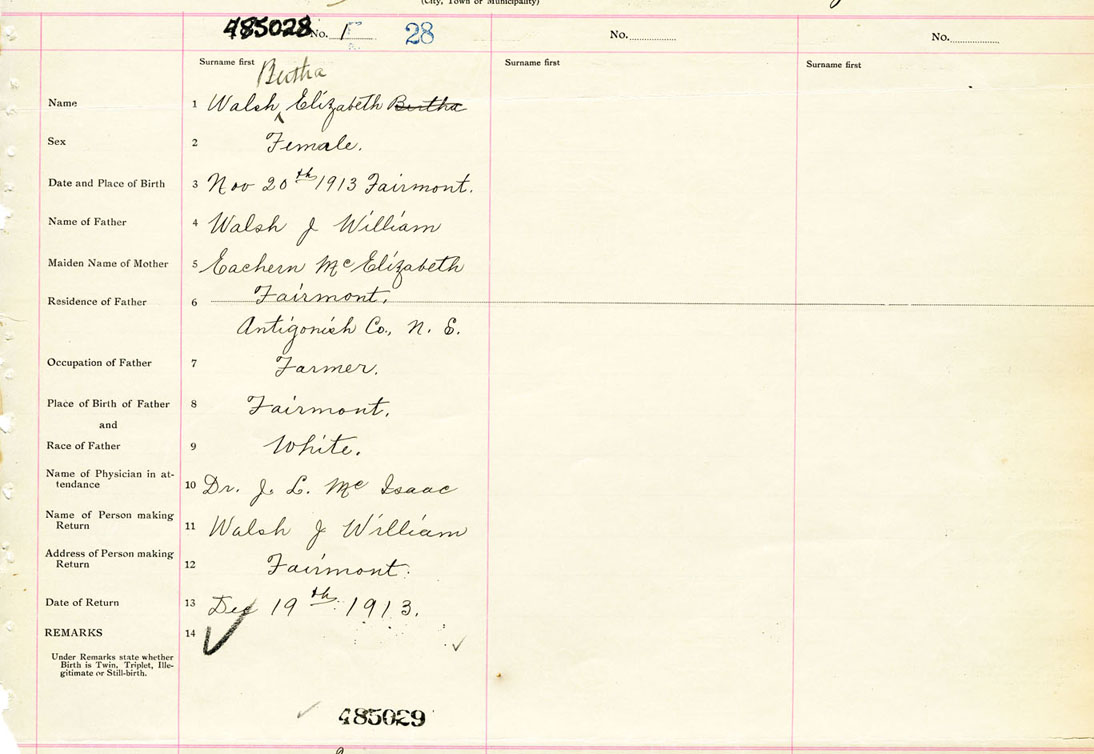 (City, Town or Municipality)
485028 No. 1 28
No.
No.
Surname first
Surname first
Surname first
Bertha
Name 1 Walsh, Elizabeth Bertha
Sex 2 Female.
Date and Place of Birth 3 Nov 20th 1913 Fairmont.
Name of Father 4 Walsh J William
Maiden Name of Mother 5 Eachern Mc Elizabeth
Residence of Father 6 Fairmont,
Antigonish Co., N. S.
Occupation of Father 7 Farmer.
Place of Birth of Father 8 Fairmont.
and
Race of Father 9 White.
Name of Physician in at-
tendance 10 Dr. J. L. Mc Isaac
Name of Person making
Return 11 Walsh J William
Address of Person making
Return 12 Fairmont.
Date of Return 13 Dec 19th 1913.
REMARKS 14
Under Remarks state whether
Birth is Twin, Triplet, Ille-
gitimate or Still-birth.
485029